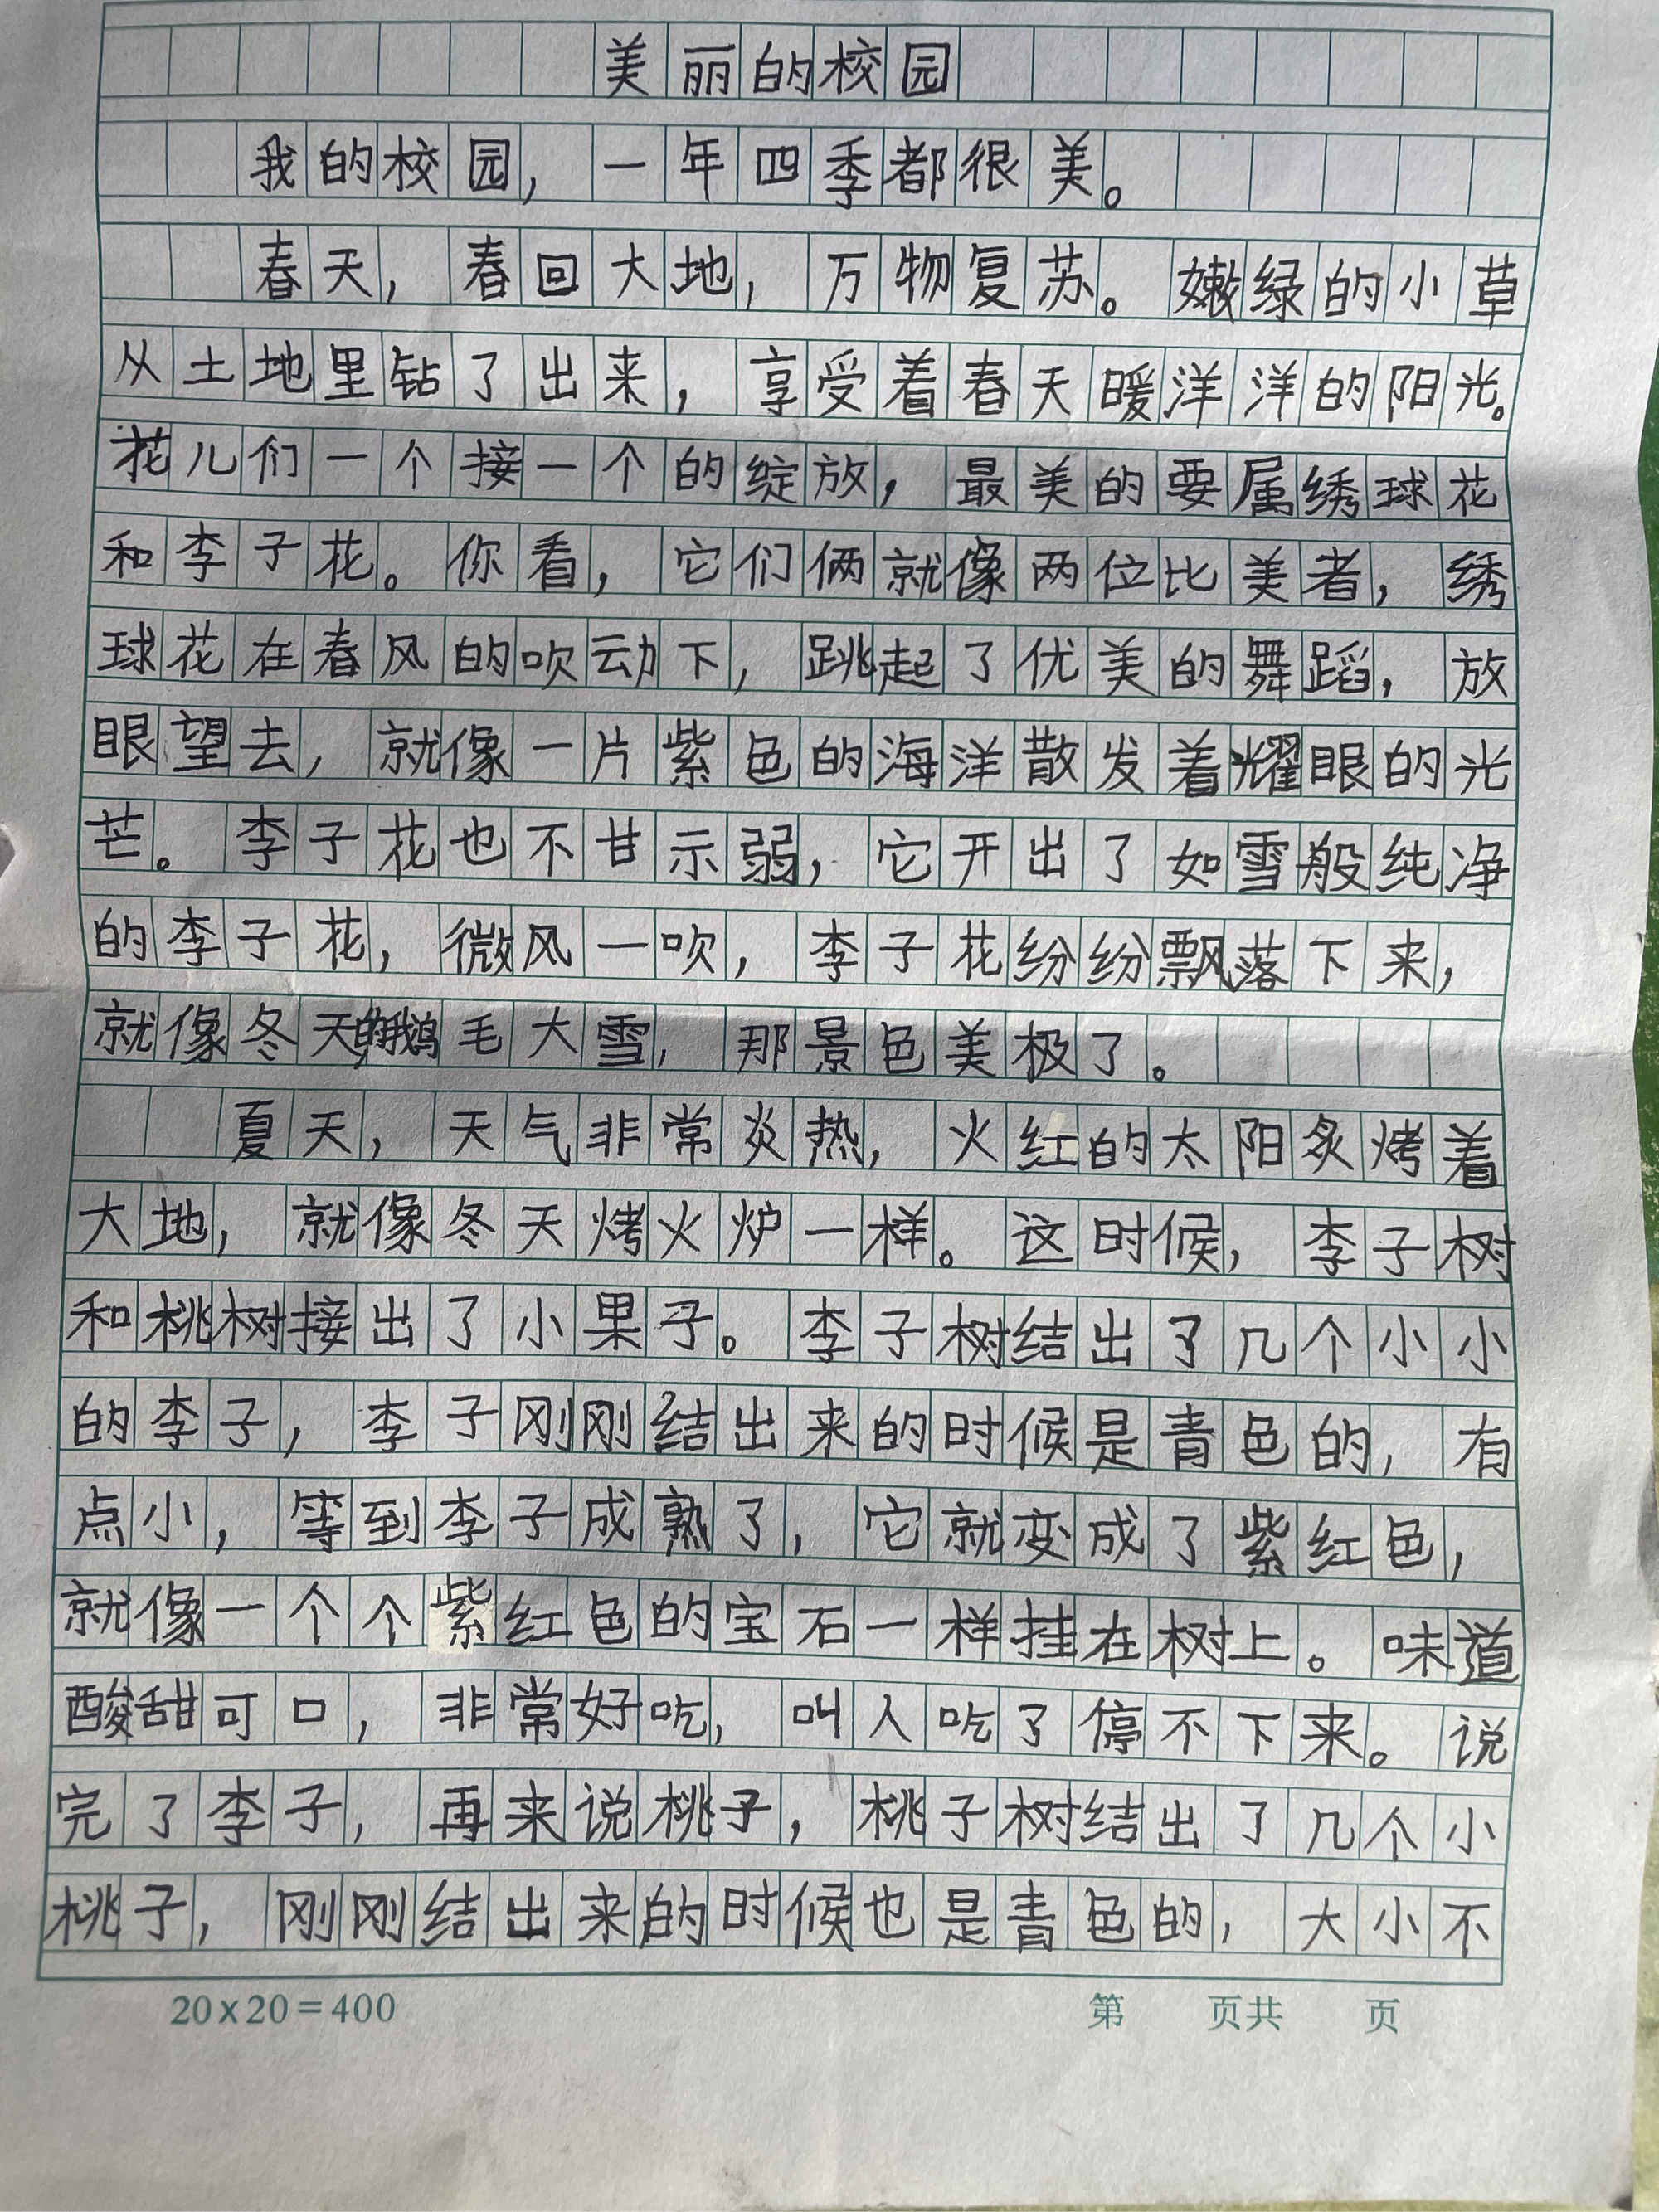 美丽的校园
我的校园，一年四季都很美。
春天，春回大地，万物复苏。嫩绿的小草
从土地里钻了出来，享受着春天暖洋洋的阳光。
花儿们一个接一个的绽放，最美的要属绣球花
和李子花。你看，它们俩就像两位比美者，绣
球花在春风的吹动下，跳起了优美的舞蹈，放
眼望去，就像一片紫色的海洋散发着耀眼的光
芒。李子花也不甘示弱，它开出了如雪般纯净
的李子花，微风一吹，李子花纷纷飘落下来，
就像冬天的鹅毛大雪，那景色美极了。
夏天，天气非常炎热，火红的太阳炙烤着
大地，就像冬天烤火炉一样。这时候，李子树
和桃树接出了小果子。李子树结出了几个小小
的李子，李子刚刚结出来的时候是青色的，有
点小，等到李子成熟了，它就变成了紫红色，
就像一个个紫红色的宝石一样挂在树上。味道
酸甜可口，非常好吃，叫人吃了停不下来。说
完了李子，再来说桃子，桃子树结出了几个小
桃子，刚刚结出来的时候也是青色的，大小不
20×20=400 第 页共 页